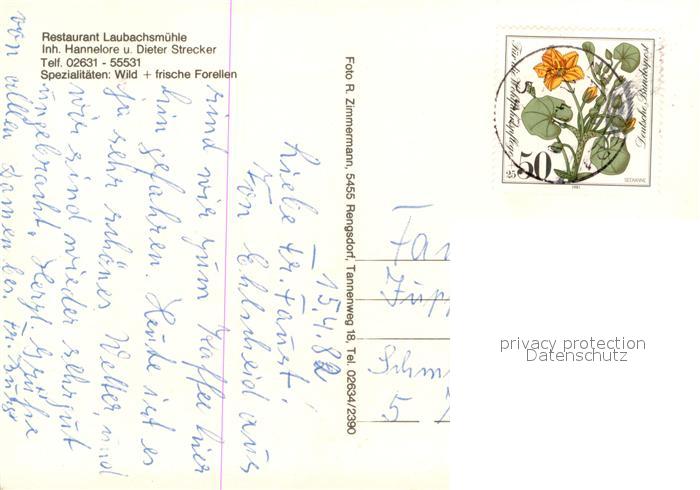 Restaurant Laubachsmühle
Inh. Hannelore u. Dieter Strecker
Telf. 02631 - 55531
Spezialitäten: Wild + frische Forellen
15.4.82
Liebe Fr. Faust!
Von Ehlscheid aus
sind wir zum Kaffee hier
hin gefahren. Heute ist es
ja sehr schönes Wetter, und
wir sind wieder sehr gut
Herzl. Grüße
von allen Damen bei Fr.
Foto R. Zimmermann, 5455 Rengsdorf, Tannenweg 18, Tel. 02634/2390
Für die Wohlfahrtspflege
Deutsche Bundespost
50
+ 25
SEEKANNE
1981
5
privacy protection
Datenschutz